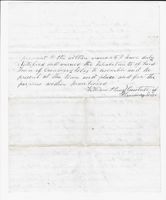 pursuant to the within warrant I have duly
notified and warned the Inhabitants of said
Town of to assemble and be
present at the time and place and for the
purpose within mentioned
Constable of